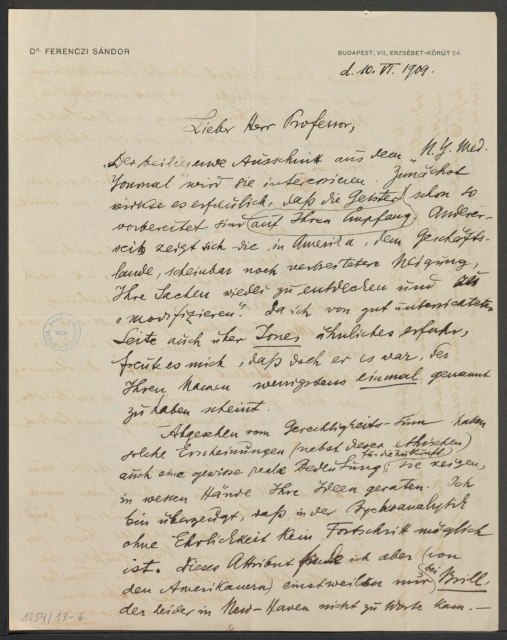 Dr. FERENCZI SÁNDOR
BUDAPEST, VII, ERZSÉBET-KÖRÚT 54.
d. 10. VI. 1909.
Lieber Herr Professor,
Der beiliegende Ausschnitt aus dem „N.Y. Med.
Journal" wird Sie interessieren. Zunächst
wirkte es erfreulich, daß die Geister schon so
vorbereitet sind (auf Ihren Empfang). Anderer-
seits zeigt sich die, in Amerika, dem Geschäfts-
lande, scheinbar noch verbreitetere Neigung,
Ihre Sachen wieder zu entdecken und zu
„modifizieren". Da ich von gut unterrichteter
Seite auch über Jones ähnliches erfuhr,
freute es mich, daß doch er es war, der
Ihren Namen wenigstens einmal genannt
zu haben scheint.
Abgesehen vom Gerechtigkeits-Sinn haben
solche Erscheinungen (nebst dieser ethischen)
für die Zukunft
auch eine gewisse reale Bedeutung; sie zeigen,
in wessen Hände Ihre Ideen geraten. Ich
bin überzeugt, daß in der Psychoanalytik
ohne Ehrlichkeit kein Fortschritt möglich
ist. Dieses Attribut finde ich aber (von
den Amerikanern) einstweilen nur bei Brill,
der leider in New-Haven nicht zu Worte kam. —
1054/13-6